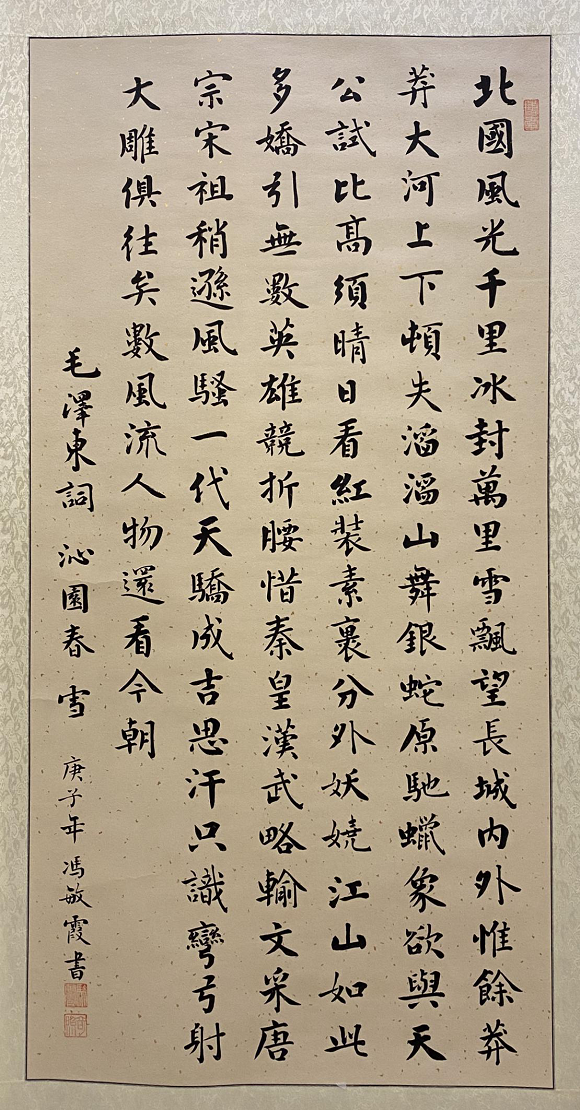 北國風光千里冰封萬里雪飄望長城内外惟餘莽
莽大河上下頓失滔滔山舞銀蛇原馳蠟象欲與天
公試比高須晴日看紅裝素裹分外妖嬈江山如此
多嬌引無數英雄競折腰惜秦皇漢武略輸文采唐
宗宋祖稍遜風騷一代天驕成吉思汗只識彎弓射
大雕俱往矣數風流人物還看今朝
毛澤東詞 沁園春 雪 庚子年馮敏霞書